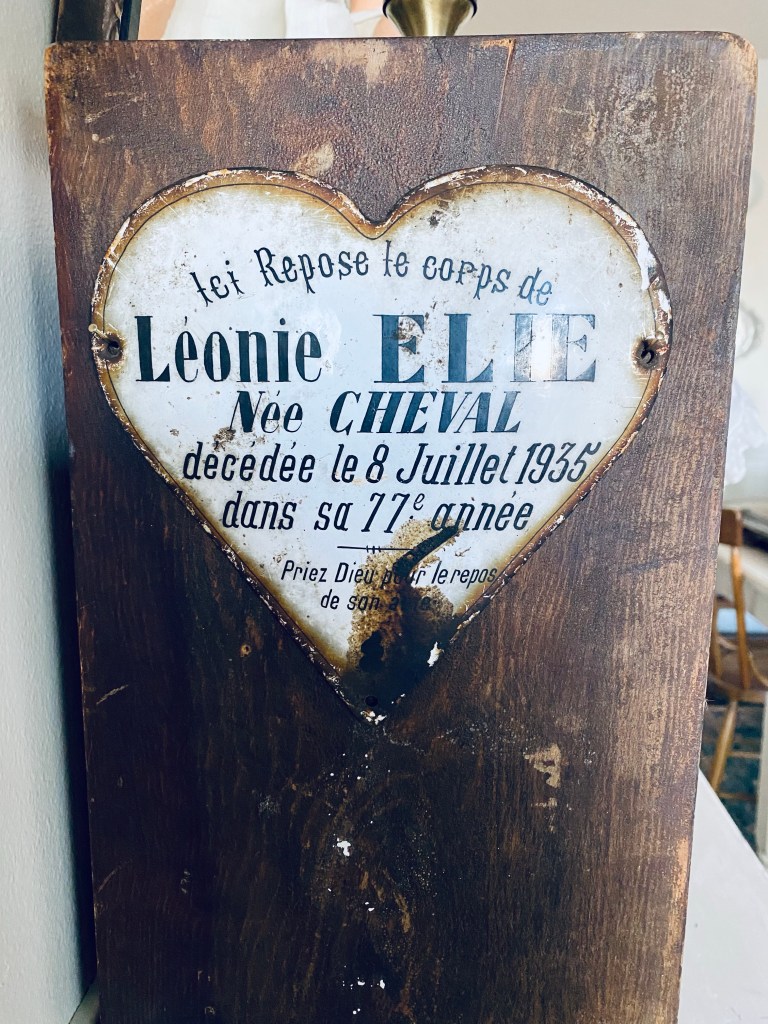 Ici Repose le corps de
Léonie ELIE
Née CHEVAL
décédée le 8 Juillet 1935
dans sa 77e année
Priez Dieu pour le repos
de son